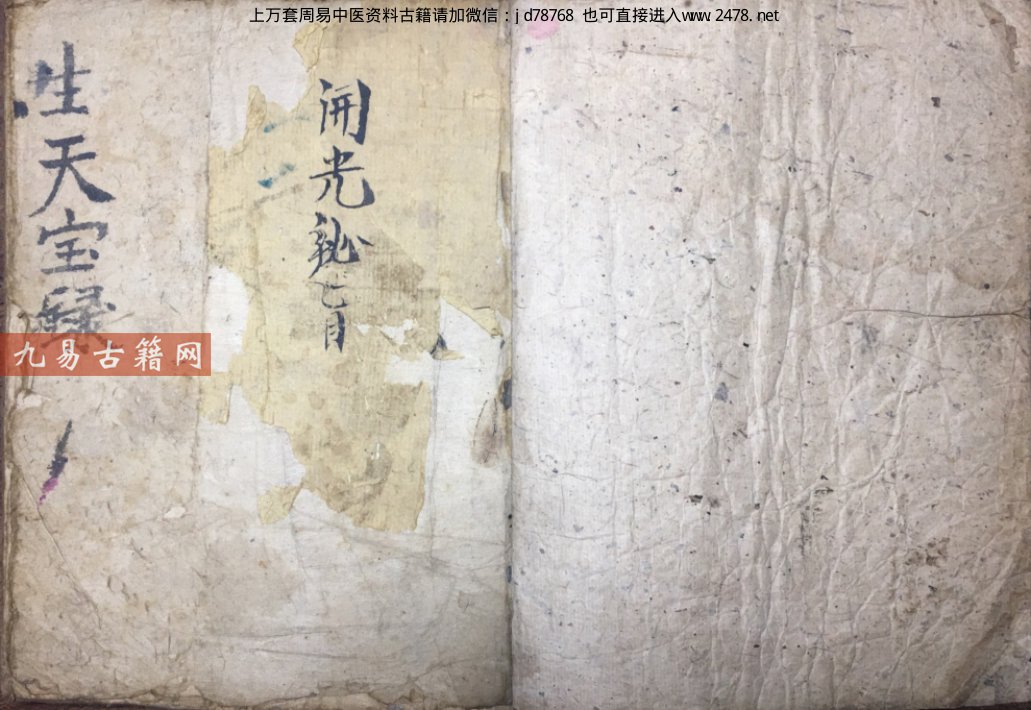 上万套周易中医资料古籍请加微信：jd78768 也可直接进入www.2478.net
開光秘旨
生天宝籙
九易古籍网